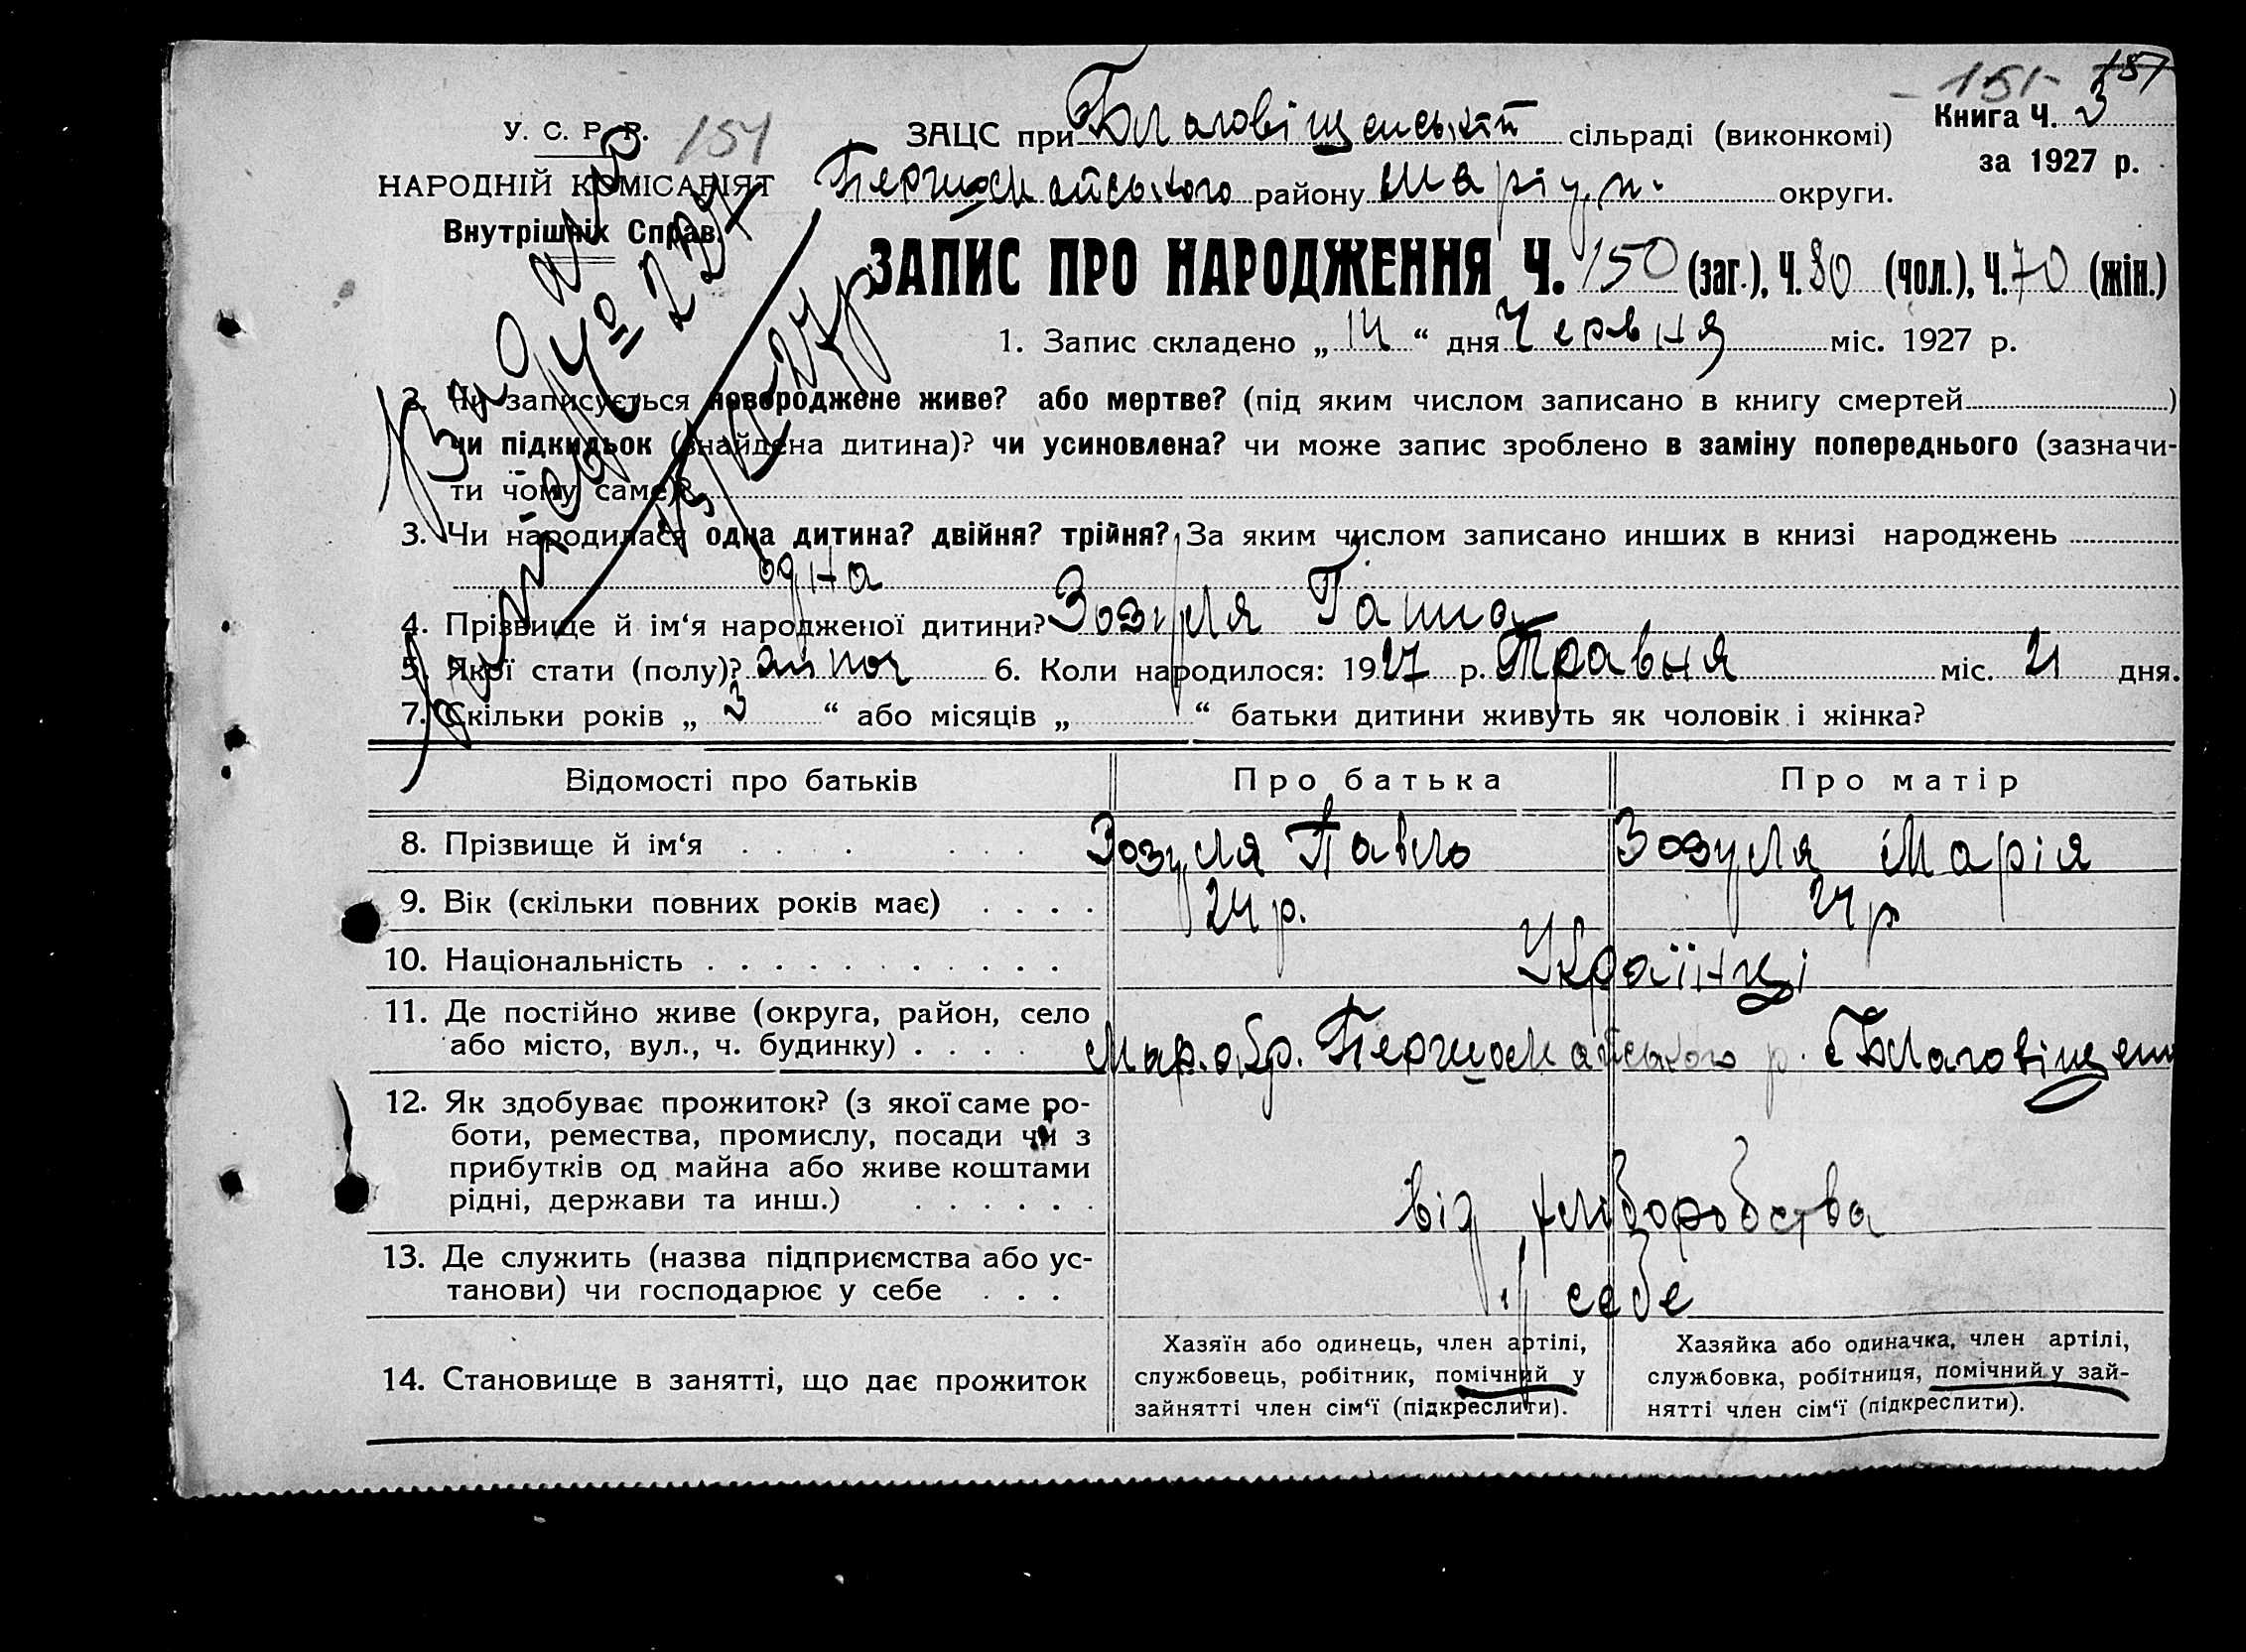 151 157
У. С. Р. Р. 151 ЗАЦС при Благовіщенській сільраді (виконкомі) Книга Ч. 3
за 1927 р.
НАРОДНІЙ КОМІСАРІЯТ Першомайського району Маріуп. округи.
Внутрішніх Справ.
ЗАПИС ПРО НАРОДЖЕННЯ Ч. 150 (заг.), Ч. 80 (чол.), Ч. 70 (жін.)
1. Запис складено „ 14 “ дня Червня міс. 1927 р.
2. Чи записується новороджене живе? або мертве? (під яким числом записано в книгу смертей )
чи підкидьок (знайдена дитина)? чи усиновлена? чи може запис зроблено в заміну попереднього (зазначи-
ти чому саме)?
3. Чи народилася одна дитина? двійня? трійня? За яким числом записано инших в книзі народжень
одна
4. Прізвище й ім‘я народженої дитини? Зозуля Ганна
5. Якої стати (полу)? жіноч 6. Коли народилося: 1927 р. Травня міс. 21 дня.
7. Скільки років „ 3 “ або місяців „ “ батьки дитини живуть як чоловік і жінка?
Відомості про батьків Про батька Про матір
8. Прізвище й ім‘я Зозуля Павло Зозуля Марія
9. Вік (скільки повних років має) 24 р. 24 р
10. Національність Українці
11. Де постійно живе (округа, район, село
або місто, вул., ч. будинку) Мар. окр. Першомайського р. с Благовіщен
12. Як здобуває прожиток? (з якої саме ро-
боти, ремества, промислу, посади чи з
прибутків од майна або живе коштами
рідні, держави та инш.) від хліборобства
13. Де служить (назва підприємства або ус-
танови) чи господарює у себе у себе
14. Становище в занятті, що дає прожиток
Хазяїн або одинець, член артілі,
службовець, робітник, помічний у
зайнятті член сім‘ї (підкреслити).
Хазяйка або одиначка, член артілі,
службовка, робітниця, помічний у зай-
нятті член сім‘ї (підкреслити).